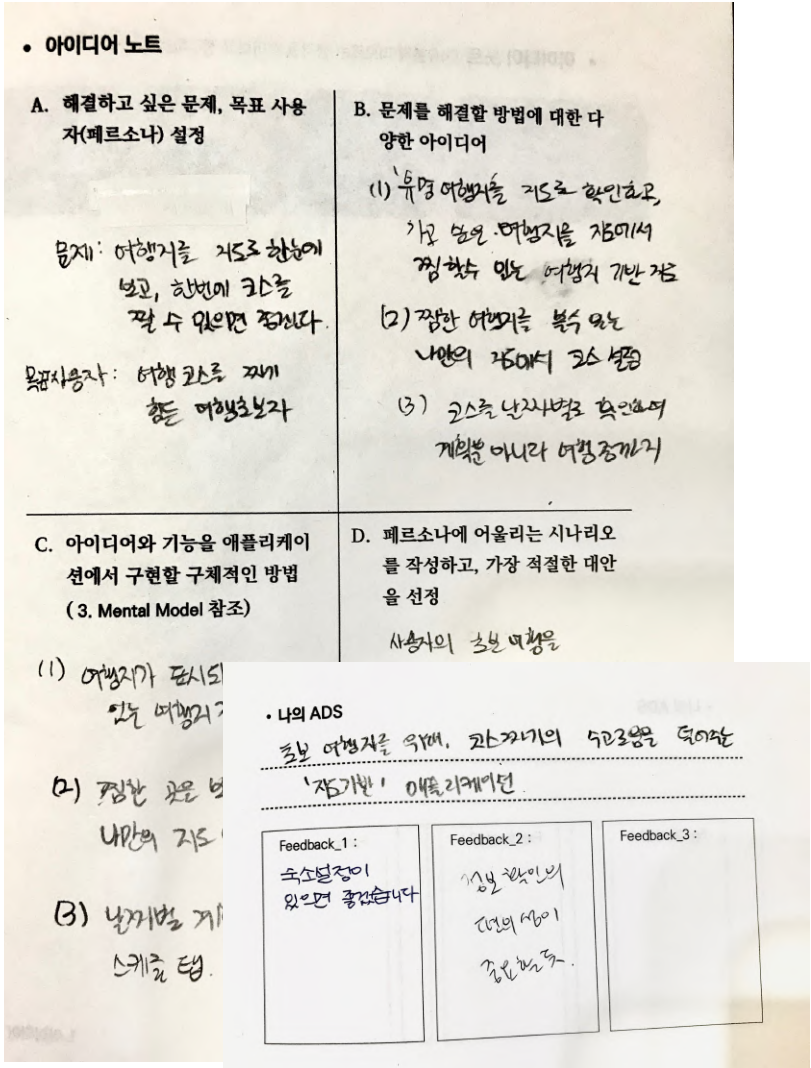 • 아이디어 노트
A. 해결하고 싶은 문제, 목표 사용
자(페르소나) 설정
문제: 여행지를 지도로 한눈에
보고, 한번에 코스를
짤 수 있으면 좋겠다.
목표사용자: 여행 코스를 짜기
힘든 여행초보자
B. 문제를 해결할 방법에 대한 다
양한 아이디어
(1) 유명 여행지를 지도로 확인하고,
가고 싶은 여행지를 지도에서
찜 할수 있는 여행지 기반 지도
(2) 찜한 여행지를 볼수 있는
나만의 지도에서 코스 설정
(3) 코스를 날짜별로 확인하여
계획뿐 아니라 여행중까지
C. 아이디어와 기능을 애플리케이
션에서 구현할 구체적인 방법
( 3. Mental Model 참조)
(1) 여행지가 표시되
있는 여행지
(2) 찜한 곳은
나만의 지도
(3) 날짜별
스케줄 탭.
D. 페르소나에 어울리는 시나리오
를 작성하고, 가장 적절한 대안
을 선정
사용자의 초보 여행을
• 나의 ADS
초보 여행자를 위해, 코스짜기의 수고로움을 덜어주는
'지도기반' 애플리케이션.
Feedback_1 :
숙소설정이
있으면 좋겠습니다
Feedback_2 :
정보 확인의
편의성이
중요할 듯.
Feedback_3 :